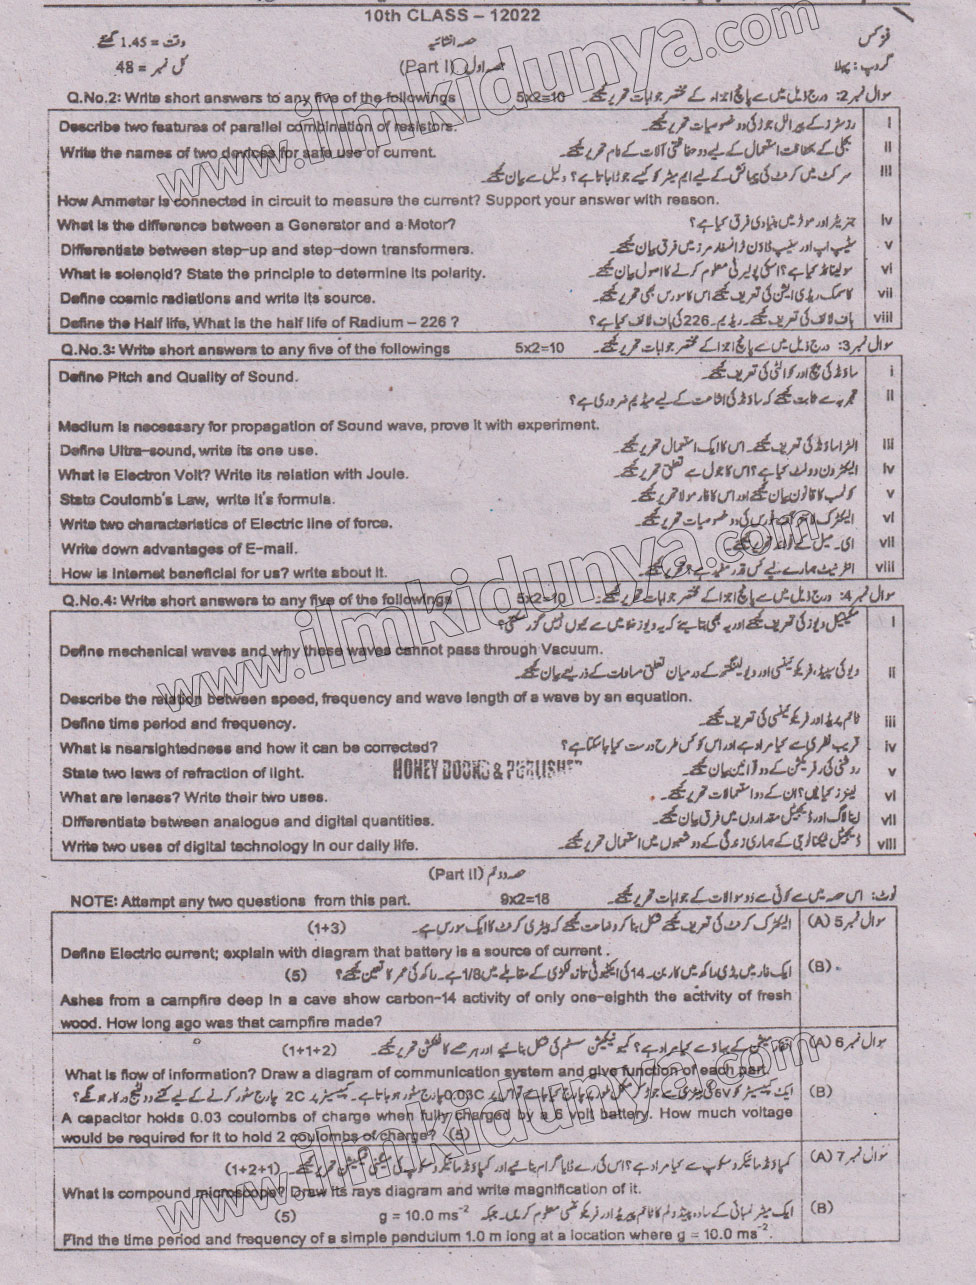 10th CLASS – 12022
وقت = 1.45 گھنٹے حصہ انشائیہ فزکس
کل نمبر = 48 حصہ اول (Part I) گروپ: پہلا
Q.No.2: Write short answers to any five of the followings 5x2=10 سوال نمبر 2: درج ذیل میں سے پانچ اجزاء کے مختصر جوابات تحریر کیجئے۔
Describe two features of parallel combination of resistors. رزسٹرز کے پیرالل جوڑ کی دو خصوصیات تحریر کیجئے۔ i
Write the names of two devices for safe use of current. بجلی کے بحفاظت استعمال کے لیے دو حفاظتی آلات کے نام تحریر کیجئے۔ ii
سرکٹ میں کرنٹ کی پیمائش کے لیے ایم میٹر کو کیسے جوڑا جاتا ہے؟ دلیل سے بیان کیجئے۔ iii
How Ammeter is connected in circuit to measure the current? Support your answer with reason.
What is the difference between a Generator and a Motor? جنریٹر اور موٹر میں بنیادی فرق کیا ہے؟ iv
Differentiate between step-up and step-down transformers. سٹیپ اپ اور سٹیپ ڈاؤن ٹرانسفارمرز میں فرق بیان کیجئے۔ v
What is solenoid? State the principle to determine its polarity. سولینائڈ کیا ہے؟ اسکی پولیرٹی معلوم کرنے کا اصول بیان کیجئے۔ vi
Define cosmic radiations and write its source. کاسمک ریڈی ایشن کی تعریف کیجئے اس کا سورس بھی تحریر کیجئے۔ vii
Define the Half life, What is the half life of Radium – 226 ? ہاف لائف کی تعریف کیجئے۔ ریڈیم۔226 کی ہاف لائف کیا ہے؟ viii
Q.No.3: Write short answers to any five of the followings 5x2=10 سوال نمبر 3: درج ذیل میں سے پانچ اجزا کے مختصر جوابات تحریر کیجئے۔
Define Pitch and Quality of Sound. ساؤنڈ کی پچ اور کوالٹی کی تعریف کیجئے۔ i
تجربہ سے ثابت کیجئے کہ ساؤنڈ کی اشاعت کے لیے میڈیم ضروری ہے؟ ii
Medium is necessary for propagation of Sound wave, prove it with experiment.
Define Ultra-sound, write its one use. الٹراساؤنڈ کی تعریف کیجئے۔ اس کا ایک استعمال تحریر کیجئے۔ iii
What is Electron Volt? Write its relation with Joule. الیکٹرون وولٹ کیا ہے؟ اس کا جول سے تعلق تحریر کیجئے۔ iv
State Coulomb's Law, write it's formula. کولمب کا قانون بیان کیجئے اور اس کا فارمولا تحریر کیجئے۔ v
Write two characteristics of Electric line of force. الیکٹرک لائنز آف فورس کی دو خصوصیات تحریر کیجئے۔ vi
Write down advantages of E-mail. ای۔ میل کے فوائد تحریر کیجئے۔ vii
How is Internet beneficial for us? write about it. انٹرنیٹ ہمارے لیے کس قدر مفید ہے؟ تحریر کیجئے۔ viii
Q.No.4: Write short answers to any five of the followings 5x2=10 سوال نمبر 4: درج ذیل میں سے پانچ اجزا کے مختصر جوابات تحریر کیجئے۔
مکینیکل ویوز کی تعریف کیجئے اور یہ بھی بتایئے کہ یہ ویوز خلا میں سے کیوں نہیں گزر سکتی؟ i
Define mechanical waves and why these waves cannot pass through Vacuum.
ویو کی سپیڈ، فریکوئنسی اور ویولینگتھ کے درمیان تعلق مساوات کے ذریعے بیان کیجئے۔ ii
Describe the relation between speed, frequency and wave length of a wave by an equation.
Define time period and frequency. ٹائم پیریڈ اور فریکوئنسی کی تعریف کیجئے۔ iii
What is nearsightedness and how it can be corrected? قریب نظری سے کیا مراد ہے اور اس کو کس طرح درست کیا جا سکتا ہے؟ iv
State two laws of refraction of light. HONEY BOOKS & PUBLISHER روشنی کی رفریکشن کے دو قوانین بیان کیجئے۔ v
What are lenses? Write their two uses. لینز کیا ہیں؟ ان کے دو استعمالات تحریر کیجئے۔ vi
Differentiate between analogue and digital quantities. اینالاگ اور ڈیجیٹل مقداروں میں فرق بیان کیجئے۔ vii
Write two uses of digital technology in our daily life. ڈیجیٹل ٹیکنالوجی کے ہماری زندگی کے دو شعبوں میں استعمال تحریر کیجئے۔ viii
حصہ دوئم (Part II)
NOTE: Attempt any two questions from this part. 9x2=18 نوٹ: اس حصہ میں سے کوئی سے دو سوالات کے جوابات تحریر کیجئے۔
سوال نمبر 5 (A) الیکٹرک کرنٹ کی تعریف کیجئے شکل بنا کر وضاحت کیجئے کہ بیٹری کرنٹ کا ایک سورس ہے۔ (1+3)
Define Electric current; explain with diagram that battery is a source of current .
(B) ایک غار میں پڑی راکھ میں کاربن۔14 کی ایکٹیوٹی تازہ لکڑی کے مقابلے میں 1/8 ہے۔ راکھ کی عمر کا تعین کیجئے؟ (5)
Ashes from a campfire deep in a cave show carbon-14 activity of only one-eighth the activity of fresh
wood. How long ago was that campfire made?
سوال نمبر 6 (A) انفارمیشن کے بہاؤ سے کیا مراد ہے؟ کمیونیکیشن سسٹم کی شکل بنایئے اور ہر حصے کا فنکشن تحریر کیجئے۔ (1+1+2)
What is flow of information? Draw a diagram of communication system and give function of each part.
(B) ایک کپیسٹر کو 6V کی بیٹری سے جوڑ کر مکمل طور پر چارج کیا جاتا ہے تو اس پر 0.03C چارج سٹور ہو جاتا ہے۔ کپیسٹر پر 2C چارج سٹور کرنے کے لیے کتنے وولٹیج درکار ہونگے؟
A capacitor holds 0.03 coulombs of charge when fully charged by a 6 volt battery. How much voltage
would be required for it to hold 2 coulombs of charge? (5)
سوال نمبر 7 (A) کمپاؤنڈ مائیکروسکوپ سے کیا مراد ہے؟ اس کی رے ڈایا گرام بنایئے اور کمپاؤنڈ مائیکروسکوپ کی میگنی فیکیشن تحریر کیجئے۔ (1+2+1)
What is compound microscope? Draw its rays diagram and write magnification of it.
(B) ایک میٹر لمبائی کے سادہ پینڈولم کا ٹائم پیریڈ اور فریکوئنسی معلوم کریں۔ جبکہ g = 10.0 ms⁻² (5)
Find the time period and frequency of a simple pendulum 1.0 m long at a location where g = 10.0 ms⁻².
www.ilmkidunya.com
www.ilmkidunya.com
www.ilmkidunya.com